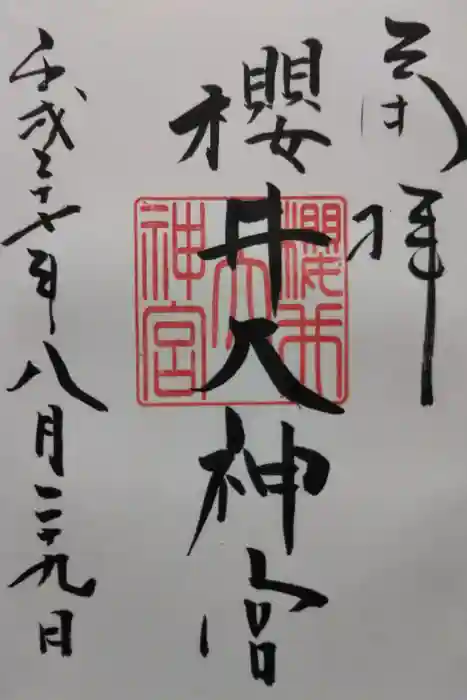 拝
櫻井大神宮
平成二十七年八月二十九日
櫻井
大
神宮